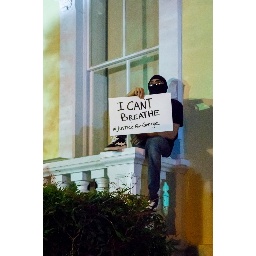 I CANT
BREATHE
#Justice For George